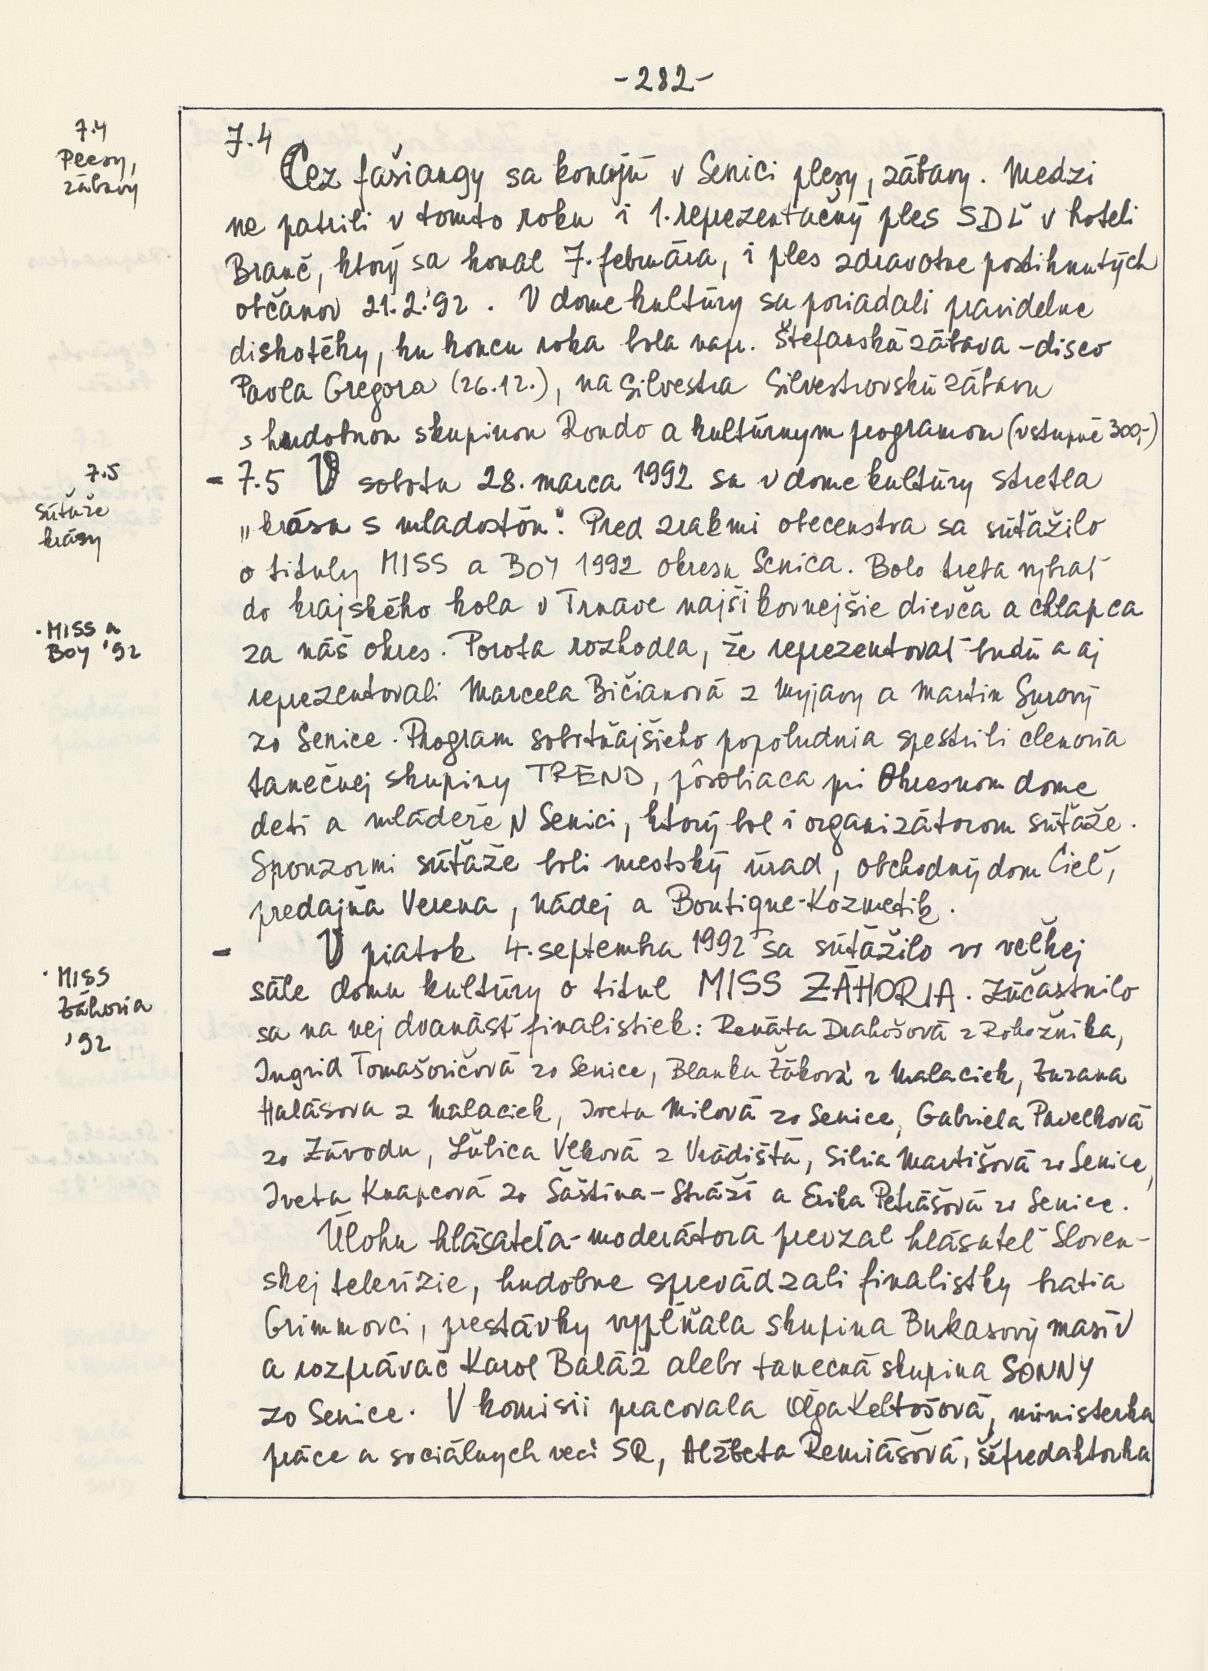 -282-
7.4
Plesy,
zábavy
7.4
Cez fašiangy sa konajú v Senici plesy, zábavy. Medzi
ne patrili v tomto roku i 1. reprezentačný ples SDĽ v hoteli
Branč, ktorý sa konal 7. februára, i ples zdravotne postihnutých
občanov 21.2.'92. V dome kultúry sa poriadali pravidelne
diskotéky, ku koncu roka bola napr. Štefanská zábava - disco
Paola Gregora (26.12.), na Silvestra Silvestrovskú zábavu
s hudobnou skupinou Rondo a kultúrnym programom (vstupné 300,-)
7.5
Súťaže
krásy
- 7.5 V sobotu 28. marca 1992 sa v dome kultúry stretla
„krása s mladosťou". Pred zrakmi obecenstva sa súťažilo
o tituly MISS a BOY 1992 okresu Senica. Bolo treba vybrať
do krajského kola v Trnave najšikovnejšie dievča a chlapca
· MISS a
BOY '92
za náš okres. Porota rozhodla, že reprezentovať budú a aj
reprezentovali Marcela Bičianová z Myjavy a Martin Surový
zo Senice. Program sobotňajšieho popoludnia spestrili členovia
tanečnej skupiny TREND, pôsobiaca pri Okresnom dome
detí a mládeže v Senici, ktorý bol i organizátorom súťaže.
Sponzormi súťaže boli mestský úrad, obchodný dom Cieľ,
predajňa Verena, nádej a Boutique-Kozmetik.
- V piatok 4. septembra 1992 sa súťažilo vo veľkej
· MISS
Záhoria
'92
sále domu kultúry o titul MISS ZÁHORIA. Zúčastnilo
sa na nej dvanásť finalistiek: Renáta Drahošová z Rohožníka,
Ingrid Tomašovičová zo Senice, Blanka Žáková z Malaciek, Zuzana
Halásova z Malaciek, Iveta Milová zo Senice, Gabriela Pavelková
zo Závodu, Ľubica Vlková z Vrádišťa, Silvia Martišová zo Senice,
Iveta Knapcová zo Šaštína-Stráží a Erika Petrášová zo Senice.
Úlohu hlásateľa-moderátora prevzal hlásateľ Sloven-
skej televízie, hudobne sprevádzali finalistky bratia
Grimmovci, prestávky vypĺňala skupina Bukasový masív
a rozprávač Karol Baláž alebo tanečná skupina SONNY
zo Senice. V komisii pracovala Oľga Keltošová, ministerka
práce a sociálnych vecí SR, Alžbeta Remiášová, šéfredaktorka